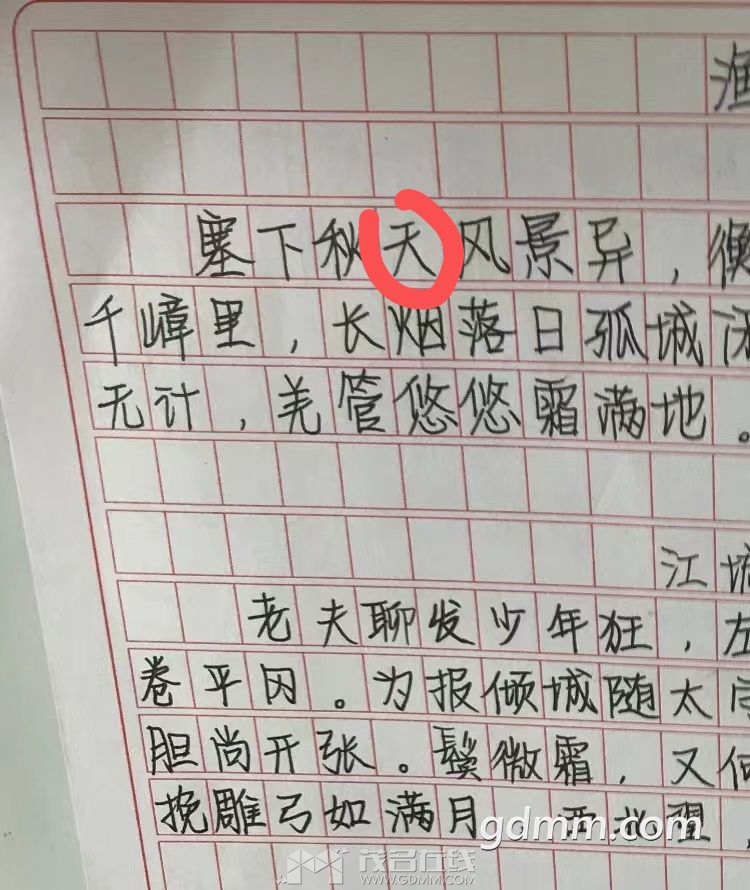 渔
塞下秋天风景异，衡
千嶂里，长烟落日孤城闭
无计，羌管悠悠霜满地。
江城
老夫聊发少年狂，左
卷平冈。为报倾城随太守
胆尚开张。鬓微霜，又何
挽雕弓如满月
gdmm.com
茂名在线
WWW.GDMM.COM